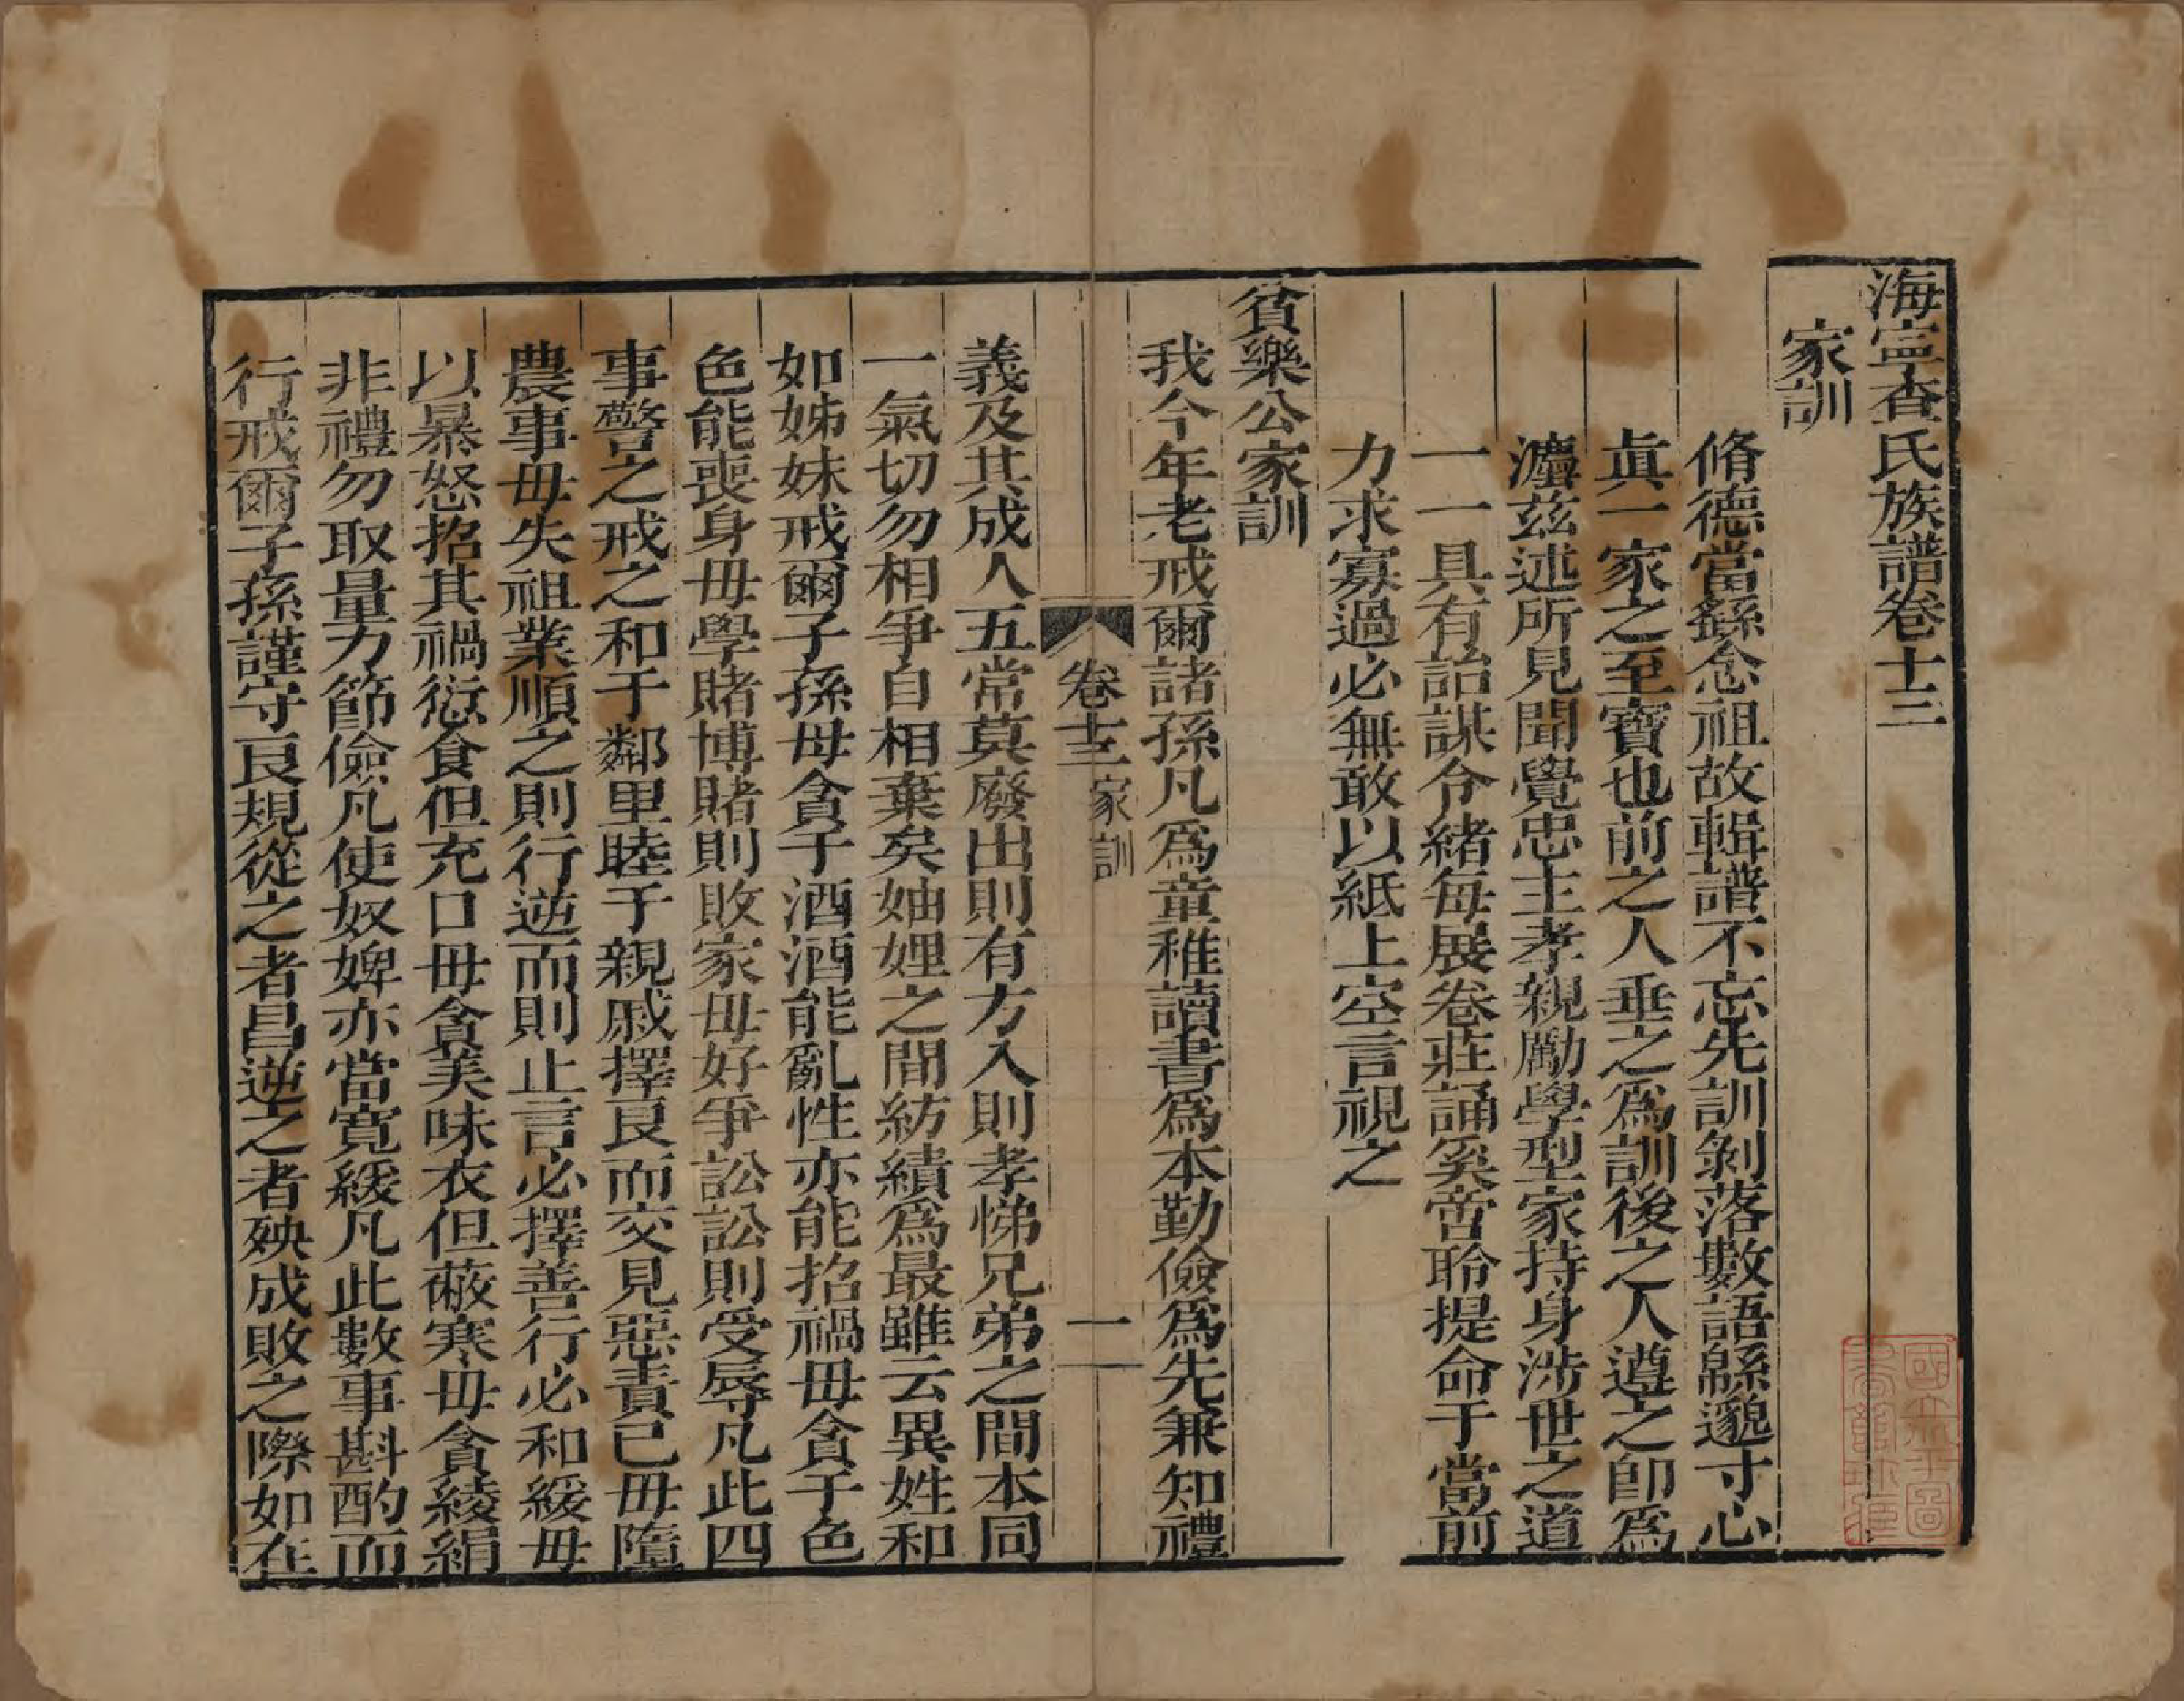 海寧查氏族譜卷十三
家訓
脩德當繇念祖故輯譜不忘先訓剝落數語緜邈寸心
眞一家之至寶也前之人垂之爲訓後之人遵之卽爲
灋茲述所見聞覺忠主孝親勵學型家持身涉世之道
一一具有詒謀介緒每展卷莊誦奚啻聆提命于當前
力求寡過必無敢以紙上空言視之
貧樂公家訓
我今年老戒爾諸孫凡爲童稚讀書爲本勤儉爲先兼知禮
卷十三 家訓 一
義及其成人五常莫廢出則有方入則孝悌兄弟之間本同
一氣切勿相爭自相棄矣妯娌之間紡績爲最雖云異姓和
如姊妹戒爾子孫毋貪于酒酒能亂性亦能招禍毋貪于色
色能喪身毋學賭博賭則敗家毋好爭訟訟則受辱凡此四
事警之戒之和于鄰里睦于親戚擇良而交見惡責己毋墮
農事毋失祖業順之則行逆而則止言必擇善行必和緩毋
以暴怒招其禍愆食但充口毋貪美味衣但蔽寒毋貪綾絹
非禮勿取量力節儉凡使奴婢亦當寬緩凡此數事斟酌而
行戒爾子孫謹守良規從之者昌逆之者殃成敗之際如在